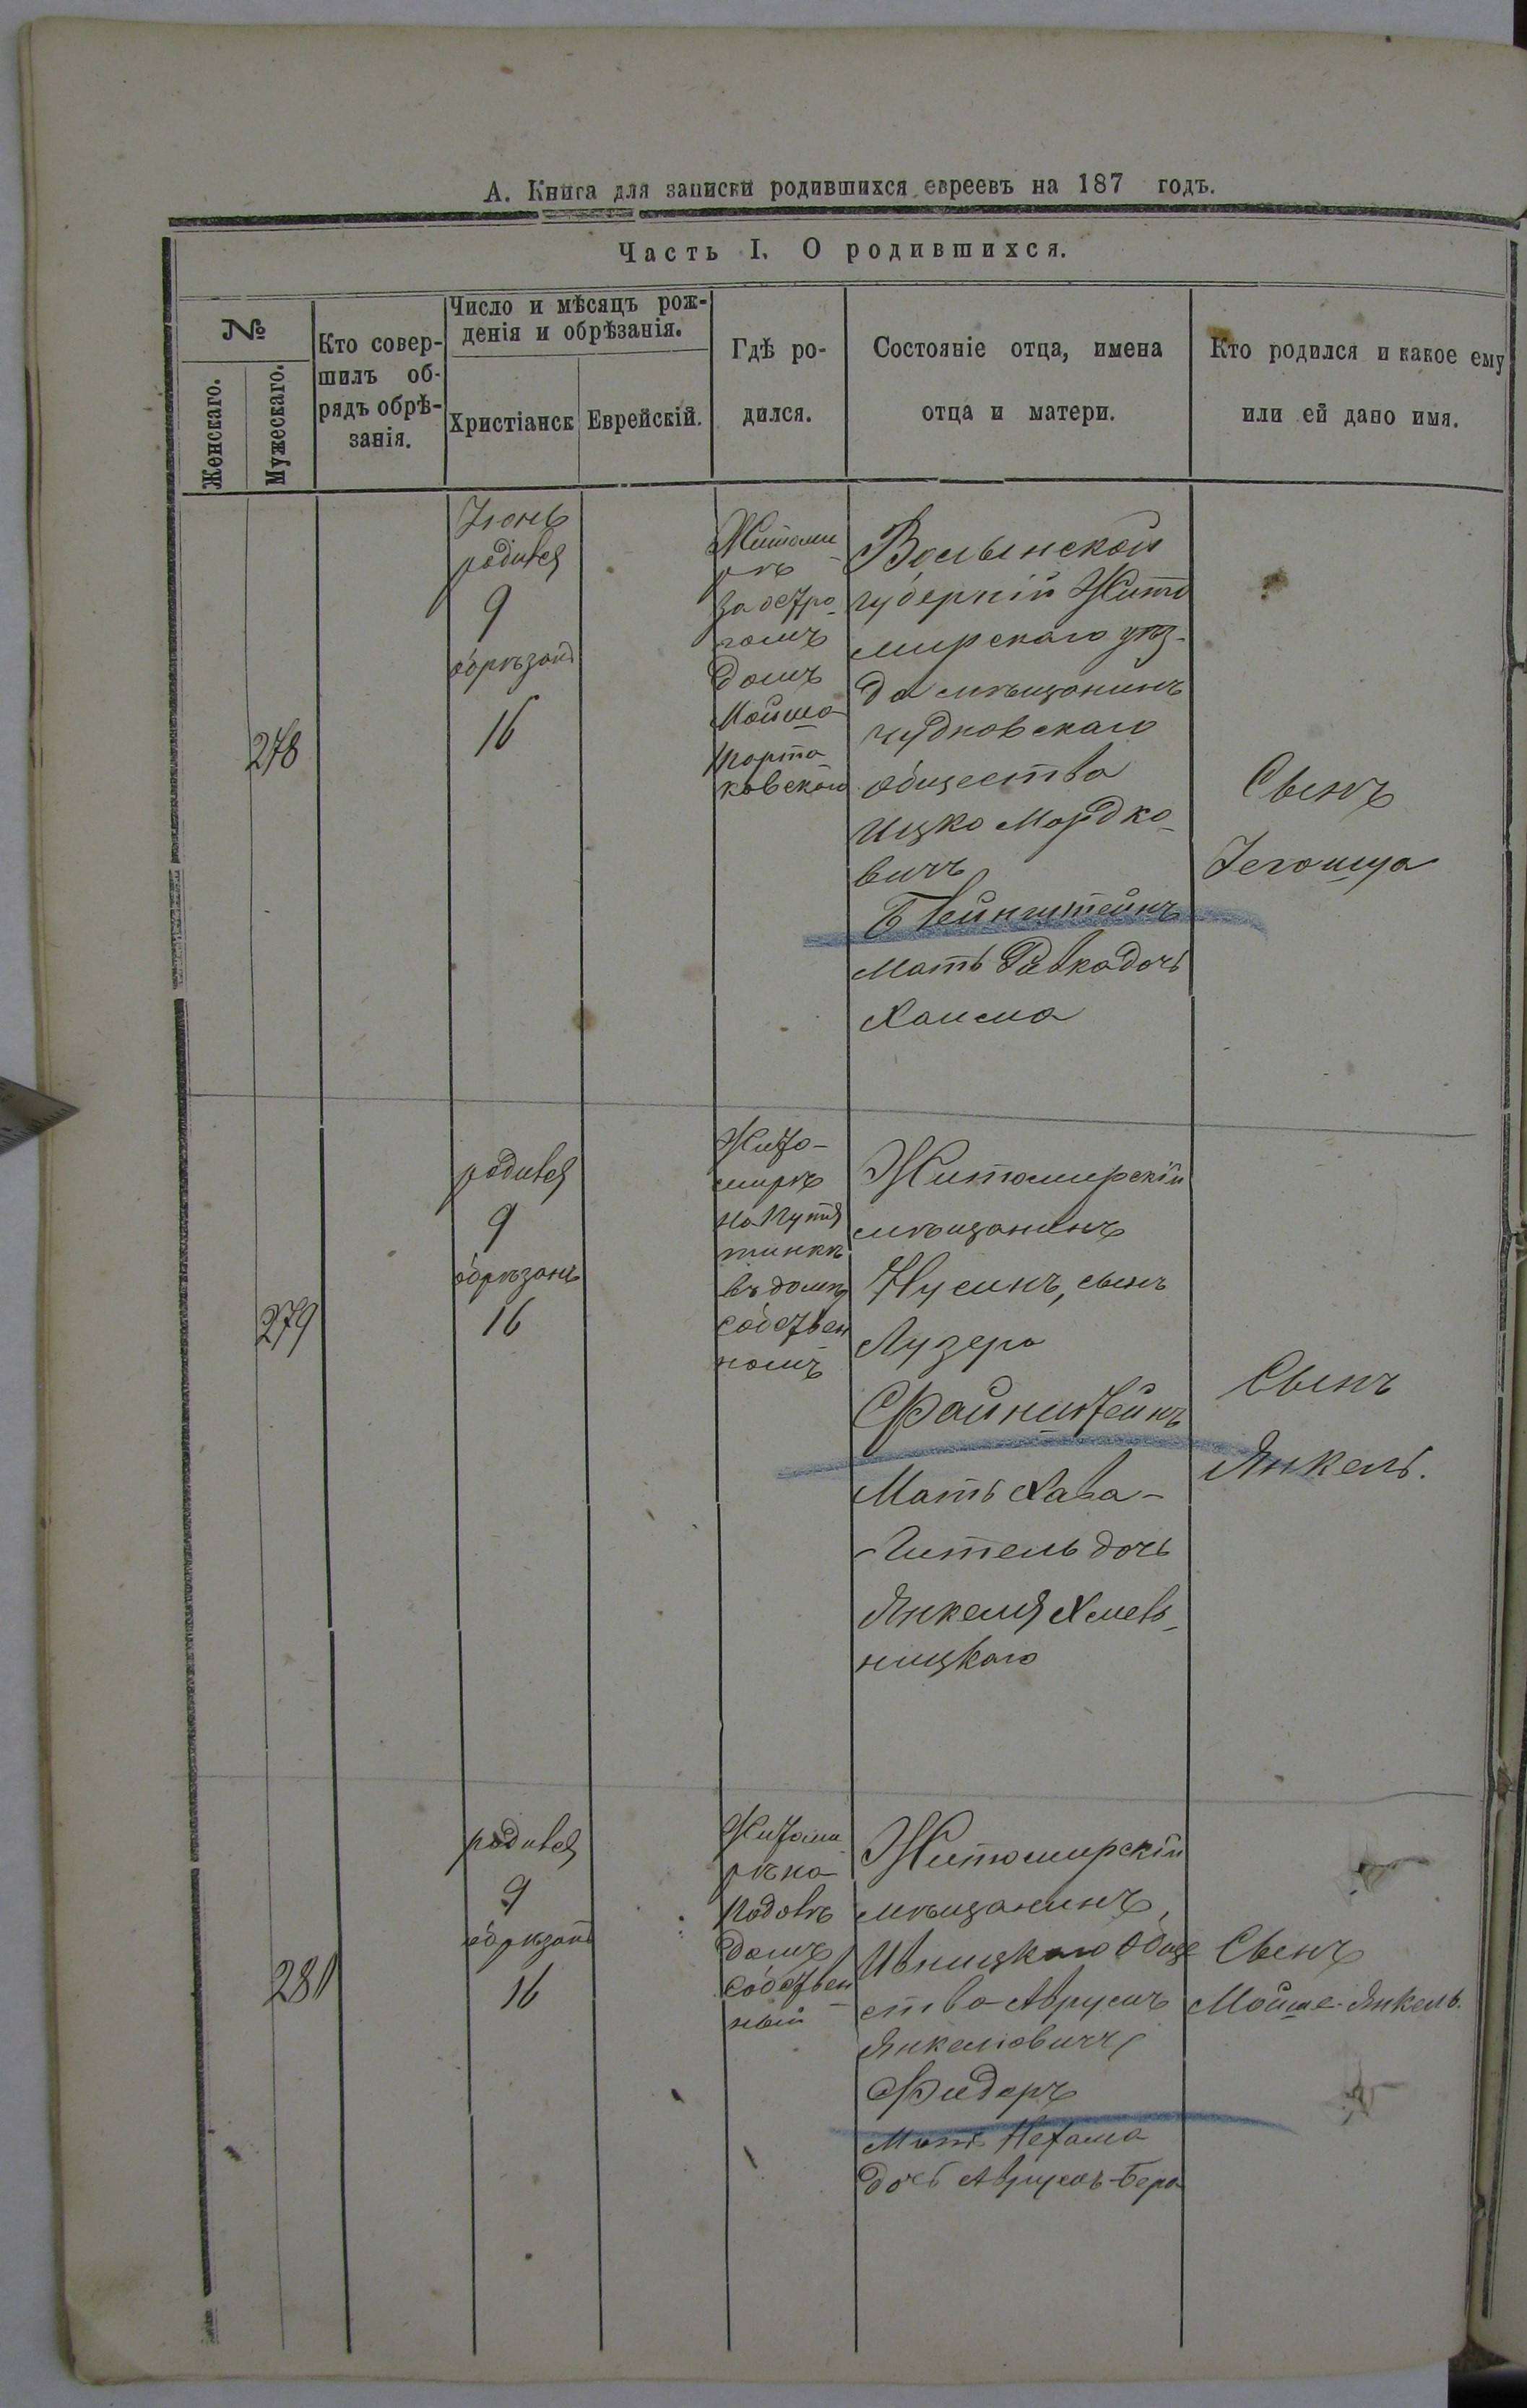 А. Книга для записки родившихся евреевъ на 187 годъ.
Часть I. О родившихся.
№
Женскаго.
Мужескаго.
Кто совер-
шилъ об-
рядъ обрѣ-
занія.
Число и мѣсяцъ рож-
денія и обрѣзанія.
Христіанск
Еврейскій.
Гдѣ ро-
дился.
Состояніе отца, имена
отца и матери.
Кто родился и какое ему
или ей дано имя.
278
Іюнь
родився
9
обрѣзанъ
16
Житоми
рѣ
за остро
гомъ
домъ
Мойша
Волынской
губерніи Жито
мирскаго уѣз-
да мѣщанинъ
чудновскаго
общества
Ицко Мордко-
вичъ
мать Ривка дочь
Хаима
Сынъ
Іегошуа
279
родився
9
обрѣзанъ
16
Жито-
мирѣ
на Путя
тинкѣ
въ домѣ
собствен
номъ
Житомирскій
мѣщанинъ
Нусинъ, сынъ
Лузера
Файнштейнъ
Мать Хава-
Гитель дочь
Янкеля Хмель
ницкаго
Сынъ
Янкель.
281
родився
9
обрѣзанъ
16
Житоми
рѣ на
Подолѣ
домъ
собствен
ный
Житомирскій
мѣщанинъ,
Ивницкаго Обще
ства Аврумъ
Янкелювичъ
Фидеръ
Мать Нехама
дочь Аврумъ-Бера
Сынъ
Мойше-Янкель.